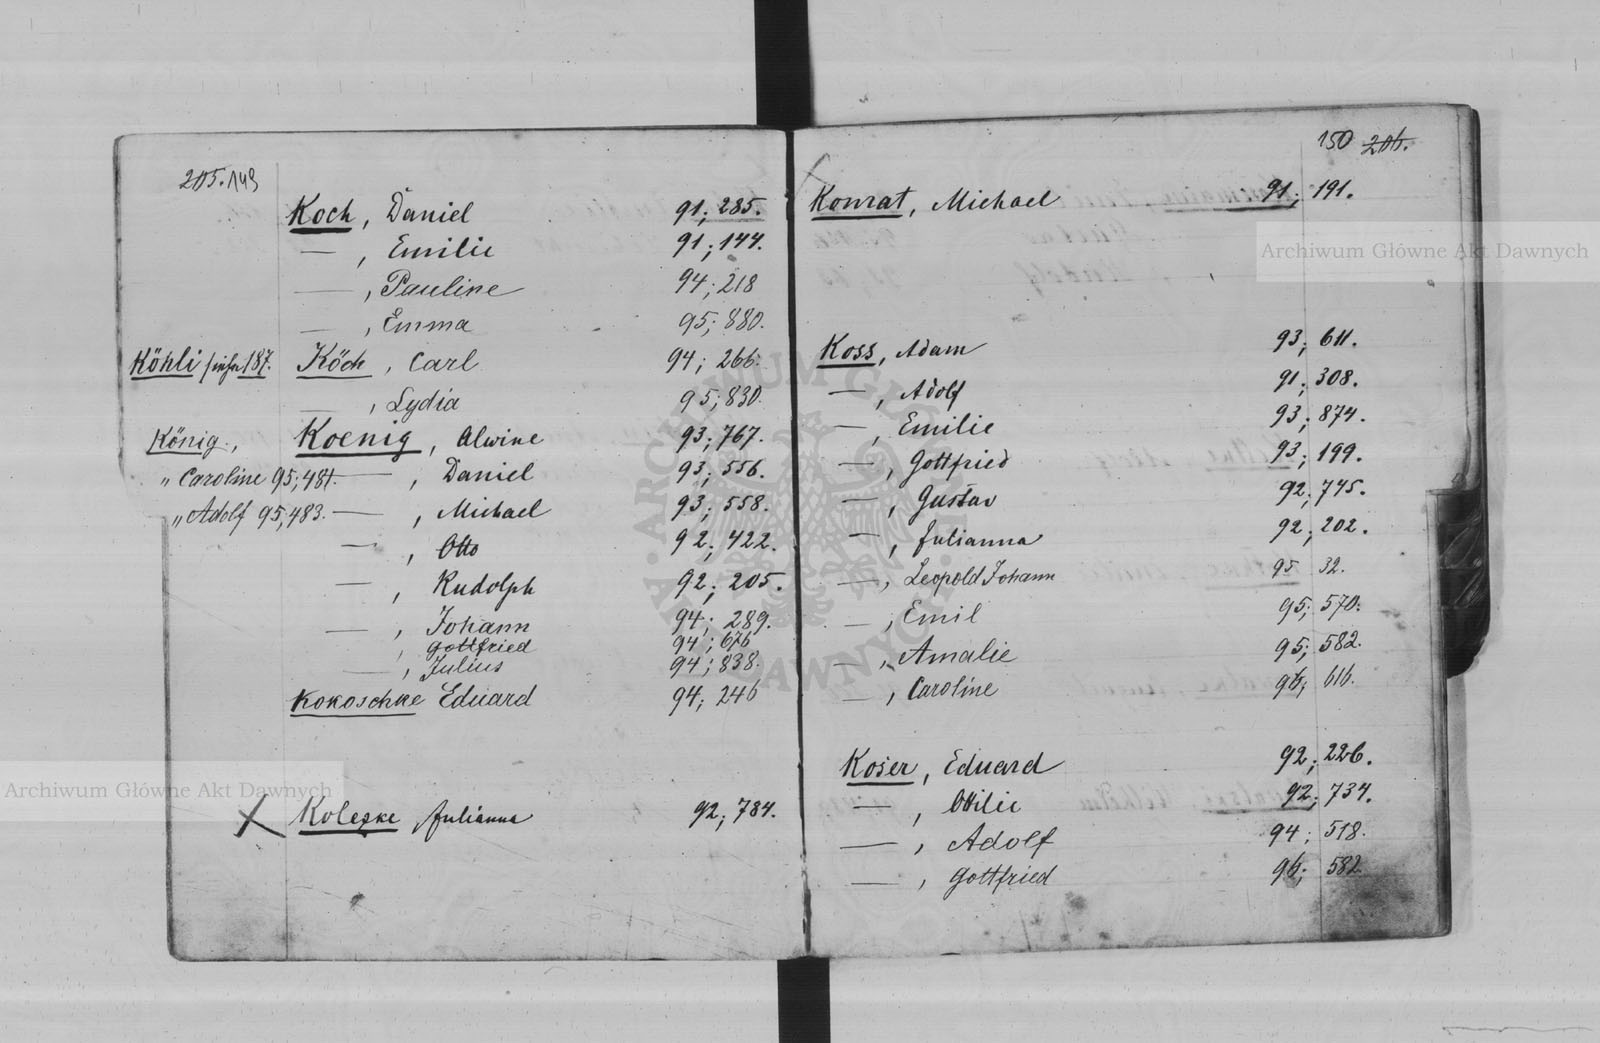 205. 149
Koch, Daniel 91; 285.
— , Emilie 91; 144.
— , Pauline 94; 218
— , Emma 95; 880.
Köhli siehe 187. Köch, Carl 94; 266.
— , Lydia 95; 830.
König, Koenig, Alwine 93; 767.
„ Caroline 95; 481. — , Daniel 93; 556.
„ Adolf 95; 483. — , Michael 93; 558.
— , Otto 92; 422.
— , Rudolph 92; 205.
— , Johann 94; 289.
, Gottfried 94; 676
— , Julius 94; 838.
Kokoschke Eduard 94; 246
Koleske Julianna 92; 784.
150 206.
Konrat, Michael 91; 191.
Koss, Adam 93; 611.
— , Adolf 91; 308.
— , Emilie 93; 874.
— , Gottfried 93; 199.
— , Gustav 92; 745.
— , Julianna 92; 202.
— , Leopold Johann 95 32.
— , Emil 95; 570.
— , Amalie 95; 582.
— , Caroline 96; 616.
Koser, Eduard 92; 226.
— , Ottilie 92; 734.
— , Adolf 94; 518.
— , Gottfried 96; 582
Archiwum Główne Akt Dawnych
Archiwum Główne Akt Dawnych
ARCHIWUM GŁÓWNE AKT DAWNYCH